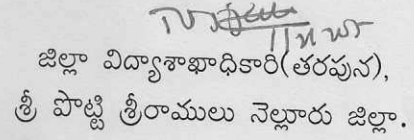 జిల్లా విద్యాశాఖాధికారి(తరపున),
శ్రీ పొట్టి శ్రీరాములు నెల్లూరు జిల్లా.